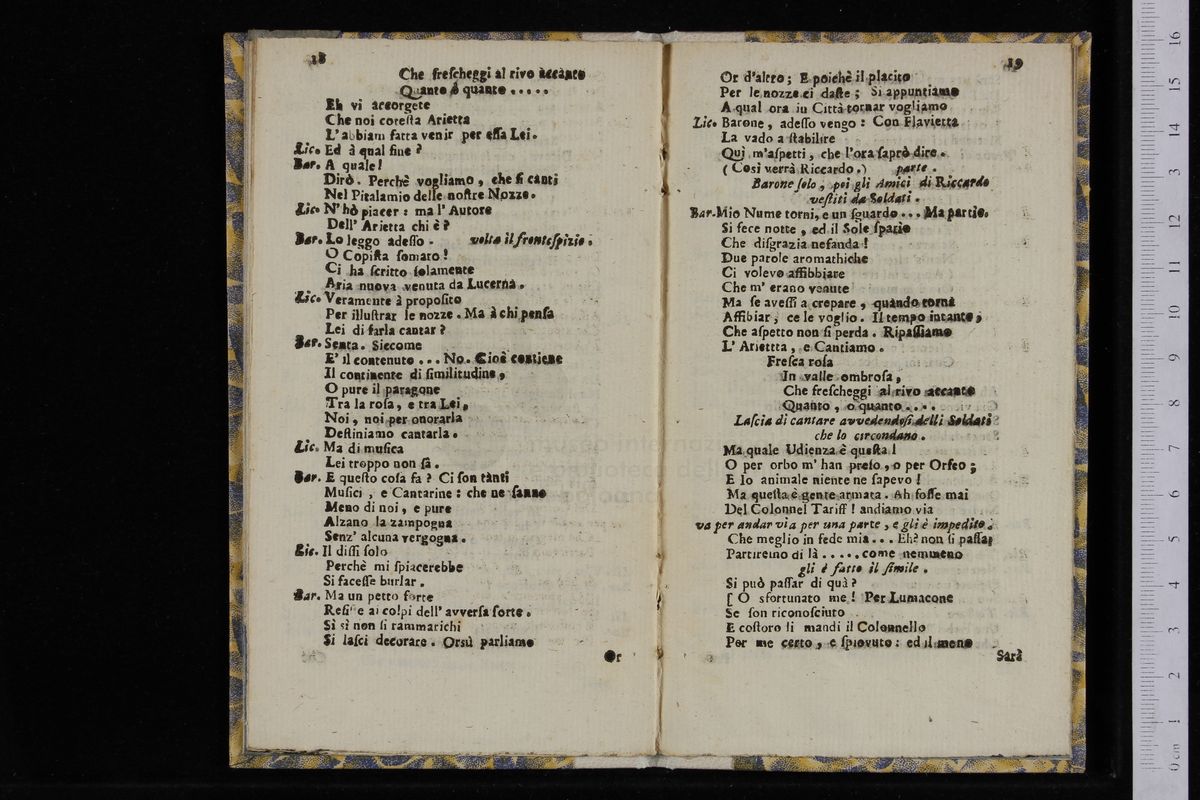 18
Che freſcheggi al rivo accanto
Quanto ò quanto . . . . .
Eh vi accorgete
Che noi coteſta Arietta
L' abbiam fatta venir per eſſa Lei.
Lic. Ed à qual fine ?
Bar. A quale!
Dirò. Perchè vogliamo , che ſi canti
Nel Pitalamio delle noſtre Nozze.
Lic. N' hò piacer : ma l' Autore
Dell' Arietta chi è ?
Bar. Lo leggo adeſſo . volta il frontespizio .
O Copiſta ſomaro !
Ci ha ſcritto ſolamente
Aria nuova venuta da Lucerna .
Lic. Veramente à propoſito
Per illuſtrar le nozze . Ma à chi penſa
Lei di farla cantar ?
Bar. Senta. Siccome
E' il contenuto . . . No. Cioè contiene
Il continente di ſimilitudine ,
O pure il paragone
Tra la roſa , e tra Lei,
Noi , noi per onorarla
Deſtiniamo cantarla .
Lic. Ma di muſica
Lei troppo non ſà .
Bar. E queſto coſa fa ? Ci ſon tànti
Muſici , e Cantarine : che ne ſanno
Meno di noi , e pure
Alzano la zampogna
Senz' alcuna vergogna .
Lic. Il diſſi ſolo
Perchè mi ſpiacerebbe
Si faceſſe burlar .
Bar. Ma un petto forte
Reſiſte ai colpi dell' avverſa ſorte .
Sì sì non ſi rammarichi
Si laſci decorare . Orsù parliamo
Or
19
Or d'altro ; E poichè il placito
Per le nozze ci daſte ; Si appuntiamo
A qual ora in Città tornar vogliamo
Lic. Barone , adeſſo vengo : Con Flavietta
La vado a ſtabilire
Quì m'aſpetti , che l'ora ſaprò dire .
( Così verrà Riccardo .) parte .
Barone ſolo , poi gli Amici di Riccardo
veſtiti da Soldati .
Bar. Mio Nume torni, e un ſguardo . . . Ma partìo.
Si fece notte , ed il Sole ſparìo
Che diſgrazia nefanda !
Due parole aromathiche
Ci volevo affibbiare
Che m' erano venute
Ma ſe aveſſi a crepare , quando torna
Affibiar , ce le voglio . Il tempo intanto ,
Che aſpetto non ſi perda . Ripaſſiamo
L' Ariettta , e Cantiamo .
Freſca roſa
In valle ombroſa ,
Che freſcheggi al rivo accanto
Quanto , o quanto . . . .
Laſcia di cantare avvedendoſi delli Soldati
che lo circondano .
Ma quale Udienza è queſta !
O per orbo m' han preſo , o per Orfeo ;
E Io animale niente ne ſapevo !
Ma queſta è gente armata . Ah foſſe mai
Del Colonnel Tariff ! andiamo via
va per andar via per una parte , e gli è impedito .
Che meglio in fede mia . . . Eh? non ſi paſſa;
Partiremo di là . . . . . come nemmeno
gli è fatto il ſimile .
Si può paſſar di quà ?
[ O sfortunato me ! Per Lumacone
Se ſon riconoſciuto
E coſtoro li mandi il Colonnello
Per me certo , e ſpiovuto : ed il meno
Sarà